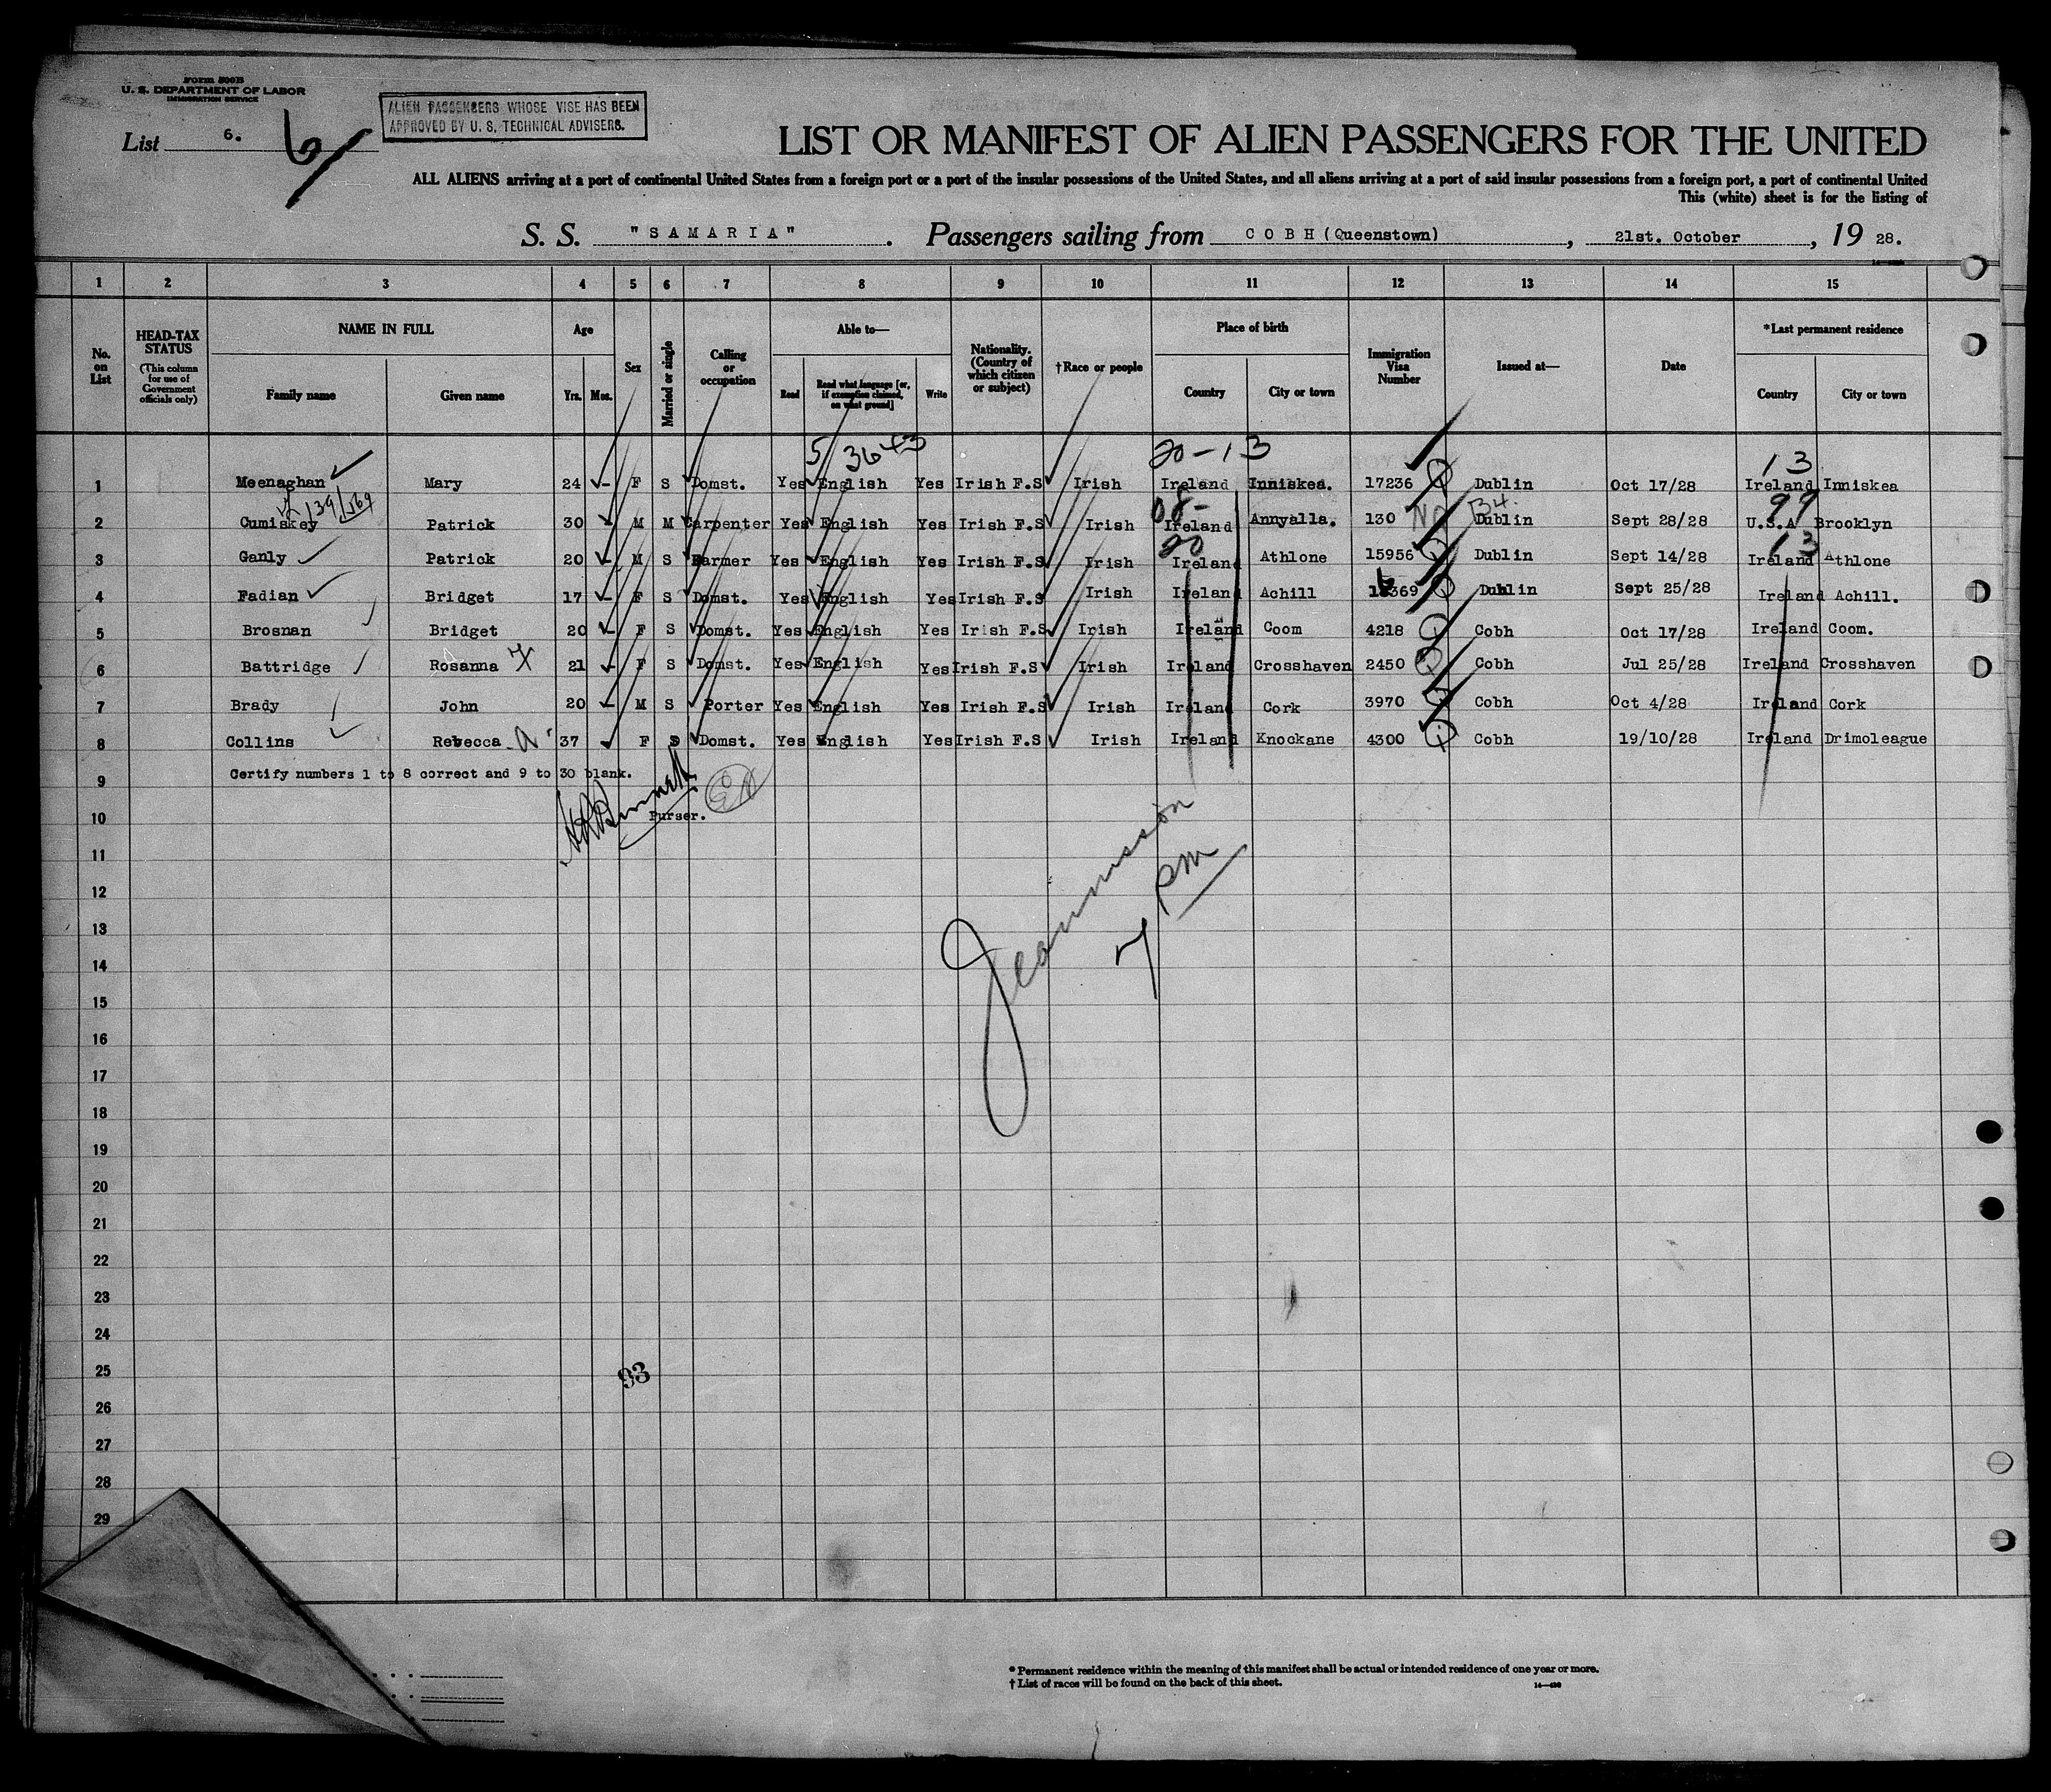 Form 500B
U. S. DEPARTMENT OF LABOR
IMMIGRATION SERVICE
ALIEN PASSENGERS WHOSE VISE HAS BEEN
APPROVED BY U. S. TECHNICAL ADVISERS.
List 6. 6
LIST OR MANIFEST OF ALIEN PASSENGERS FOR THE UNITED
ALL ALIENS arriving at a port of continental United States from a foreign port or a port of the insular possessions of the United States, and all aliens arriving at a port of said insular possessions from a foreign port, a port of continental United
This (white) sheet is for the listing of
S. S. "SAMARIA" . Passengers sailing from COBH (Queenstown) , 21st. October , 19 28.
1 2 3 4 5 6 7 8 9 10 11 12 13 14 15
No. on List
HEAD-TAX STATUS
(This column for use of Government officials only)
NAME IN FULL
Family name Given name
Age
Yrs. Mos.
Sex
Married or single
Calling or occupation
Able to—
Read Read what language [or, if exemption claimed, on what ground] Write
Nationality. (Country of which citizen or subject)
†Race or people
Place of birth
Country City or town
Immigration Visa Number
Issued at—
Date
*Last permanent residence
Country City or town
5 3643 20-13 13
1 Meenaghan Mary 24 F S Domst. Yes English Yes Irish F.S Irish Ireland Inniskea. 17236 Dublin Oct 17/28 Ireland Inniskea
08- 99
2 Cumiskey Patrick 30 M M Carpenter Yes English Yes Irish F.S Irish Ireland Annyalla. 130 Dublin Sept 28/28 U.S.A Brooklyn
20 13
3 Ganly Patrick 20 M S Farmer Yes English Yes Irish F.S Irish Ireland Athlone 15956 Dublin Sept 14/28 Ireland Athlone
4 Fadian Bridget 17 F S Domst. Yes English Yes Irish F.S Irish Ireland Achill Dublin Sept 25/28 Ireland Achill.
5 Brosnan Bridget 20 F S Domst. Yes English Yes Irish F.S Irish Ireland Coom 4218 Cobh Oct 17/28 Ireland Coom.
6 Battridge Rosanna X 21 F S Domst. Yes English Yes Irish F.S Irish Ireland Crosshaven 2450 Cobh Jul 25/28 Ireland Crosshaven
7 Brady John 20 M S Porter Yes English Yes Irish F.S Irish Ireland Cork 3970 Cobh Oct 4/28 Ireland Cork
8 Collins Rebecca 37 F S Domst. Yes English Yes Irish F.S Irish Ireland Knockane 4300 Cobh 19/10/28 Ireland Drimoleague
9 Certify numbers 1 to 8 correct and 9 to 30 blank.
10 Purser.
11
12
7 pm
13
14
15
16
17
18
19
20
21
22
23
24
25 93
26
27
28
29
* Permanent residence within the meaning of this manifest shall be actual or intended residence of one year or more.
† List of races will be found on the back of this sheet.